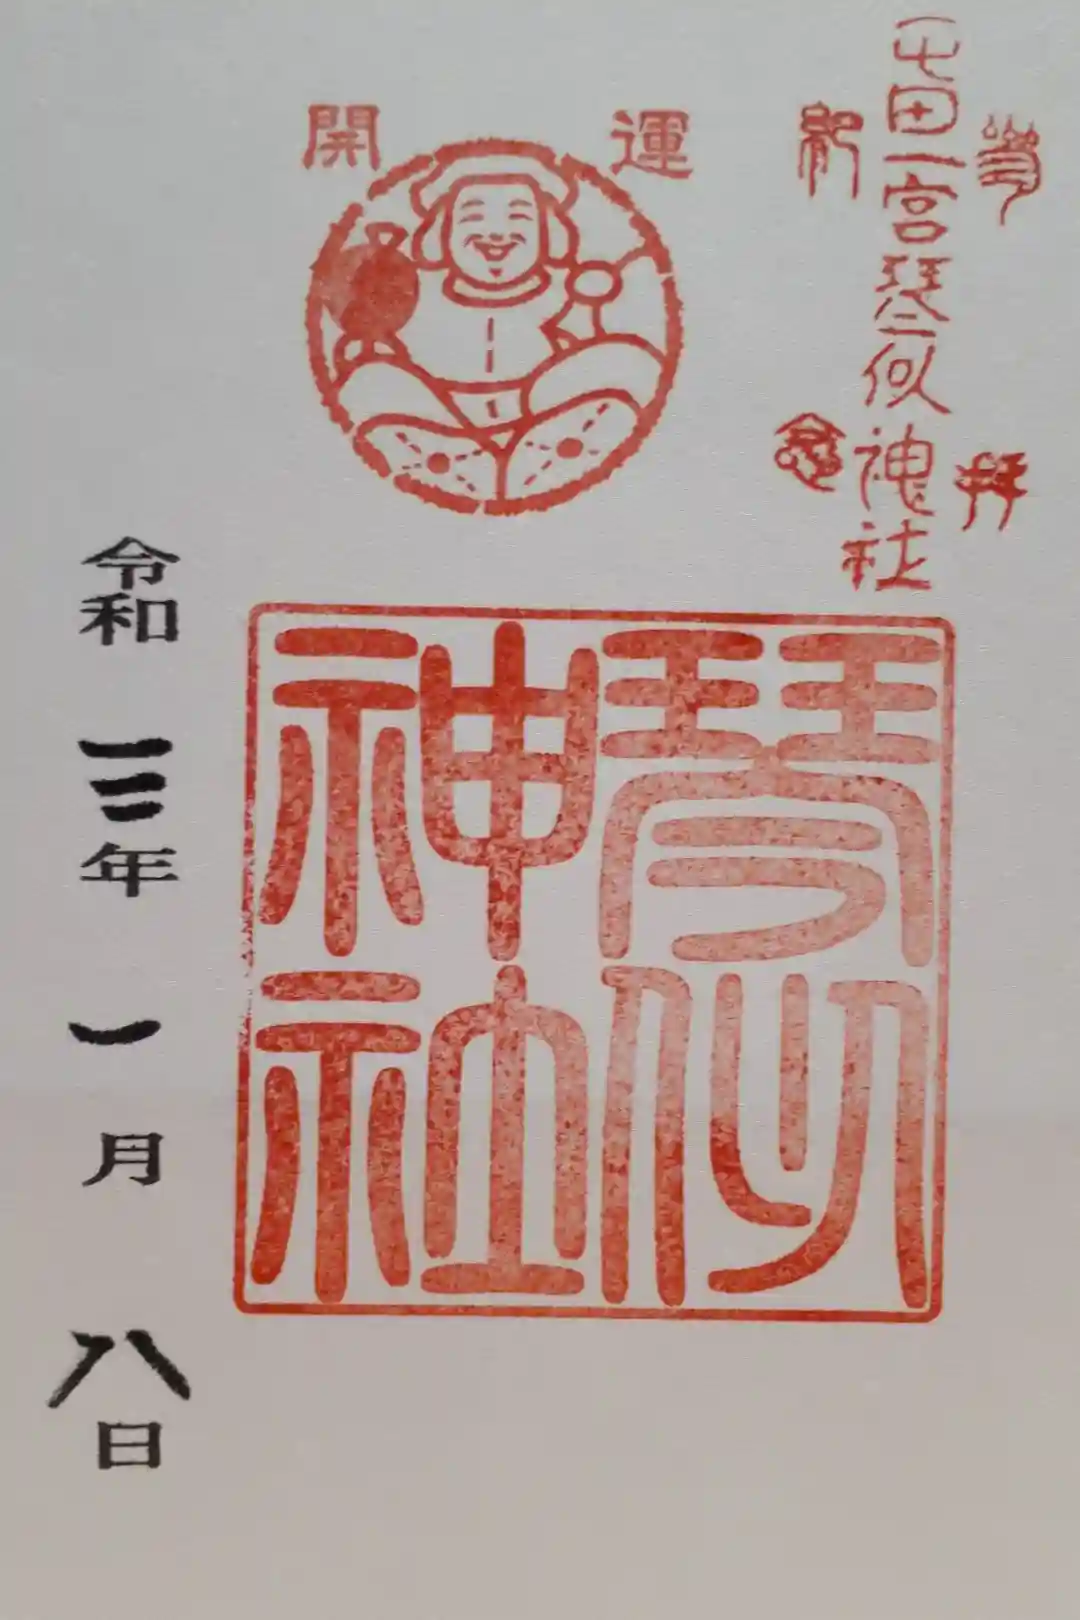 參拝
屯田一宮琴似神社
紀念
開運
琴似
神社
令和三年一月八日